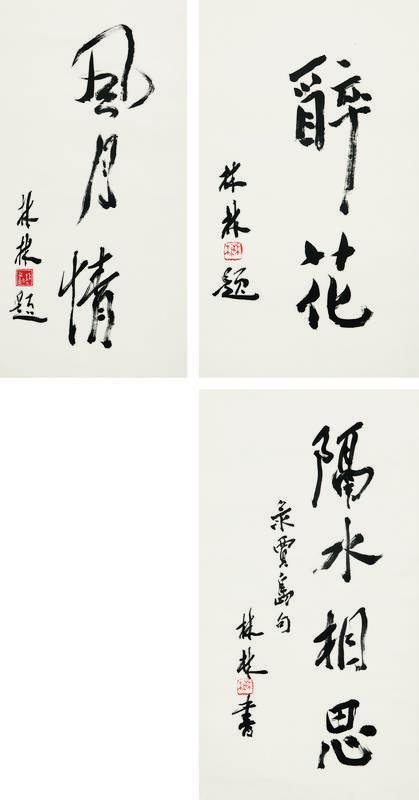 風月情
林林題
醉花
林林題
隔水相思
录賈島句
林林書